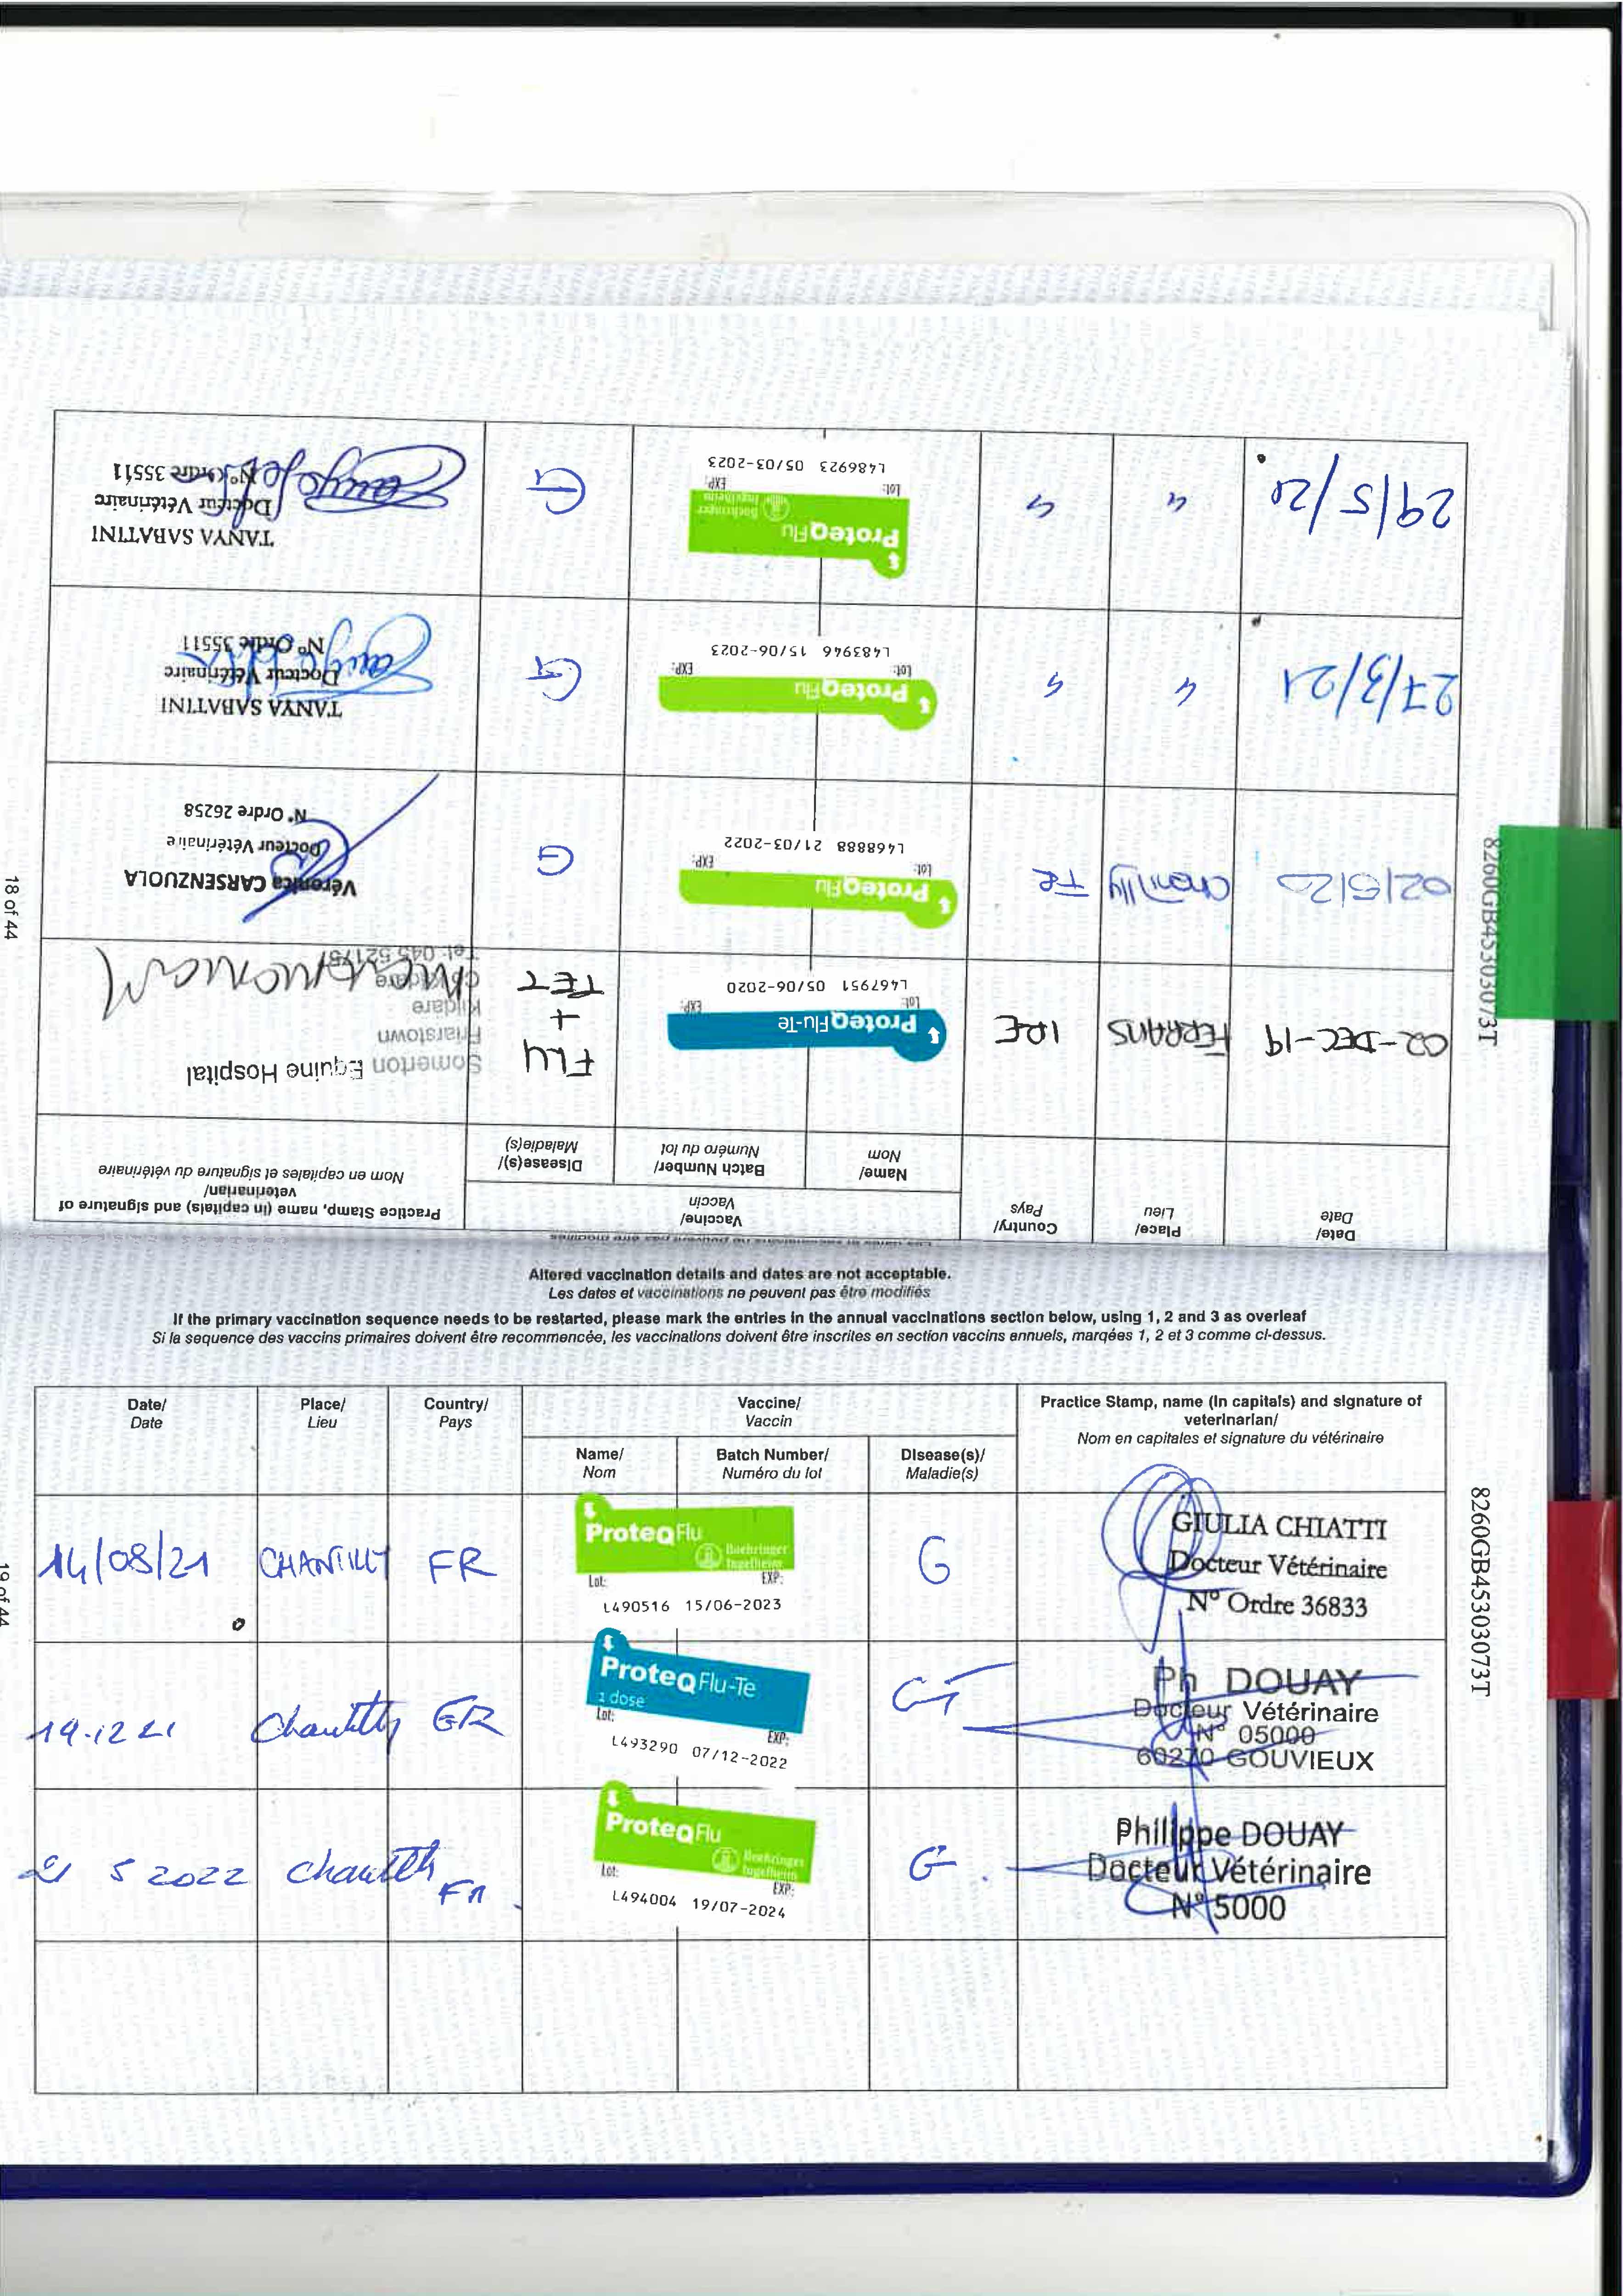 Les dates et vaccinations ne peuvent pas être modifiés
Date/
Date
Place/
Lieu
Country/
Pays
Vaccine/
Vaccin
Name/
Nom
Batch Number/
Numéro du lot
Disease(s)/
Maladie(s)
Practice Stamp, name (in capitals) and signature of
veterinarian/
Nom en capitales et signature du vétérinaire
02-DEC-19
FERRANS
IRE
ProteqFlu-Te
Lot:
EXP:
L467951 05/06-2020
FLU
+
TET
Somerton Equine Hospital
Friarstown
Kildare
Tel: 045 521751
02/5/20
Chantilly
FR
ProteqFlu
Lot:
EXP:
L468888 21/03-2022
G
Véronica CARSENZUOLA
Docteur Vétérinaire
N° Ordre 26258
27/3/21
"
"
ProteqFlu
Lot:
EXP:
L483946 15/06-2023
G
TANYA SABATTINI
Docteur Vétérinaire
N° Ordre 35511
29/5/21
"
"
ProteqFlu
Boehringer
Ingelheim
Lot:
EXP:
L486923 05/03-2023
G
TANYA SABATTINI
Docteur Vétérinaire
N° Ordre 35511
18 of 44
8260GB45303073T
Altered vaccination details and dates are not acceptable.
Les dates et vaccinations ne peuvent pas être modifiés
If the primary vaccination sequence needs to be restarted, please mark the entries in the annual vaccinations section below, using 1, 2 and 3 as overleaf
Si la sequence des vaccins primaires doivent être recommencée, les vaccinations doivent être inscrites en section vaccins annuels, marqées 1, 2 et 3 comme ci-dessus.
Date/
Date
Place/
Lieu
Country/
Pays
Vaccine/
Vaccin
Name/
Nom
Batch Number/
Numéro du lot
Disease(s)/
Maladie(s)
Practice Stamp, name (in capitals) and signature of
veterinarian/
Nom en capitales et signature du vétérinaire
14/08/21
CHANTILLY
FR
ProteqFlu
Boehringer
Ingelheim
Lot:
EXP:
L490516 15/06-2023
G
GIULIA CHIATTI
Docteur Vétérinaire
N° Ordre 36833
19.12 21
Chantilly
FR
ProteqFlu-Te
1 dose
Lot:
EXP:
L493290 07/12-2022
GT
Ph DOUAY
Docteur Vétérinaire
N° 05000
60270 GOUVIEUX
21 5 2022
Chantilly
FR
ProteqFlu
Boehringer
Ingelheim
Lot:
EXP:
L494004 19/07-2024
G.
Philippe DOUAY
Docteur Vétérinaire
N° 5000
19 of 44
8260GB45303073T